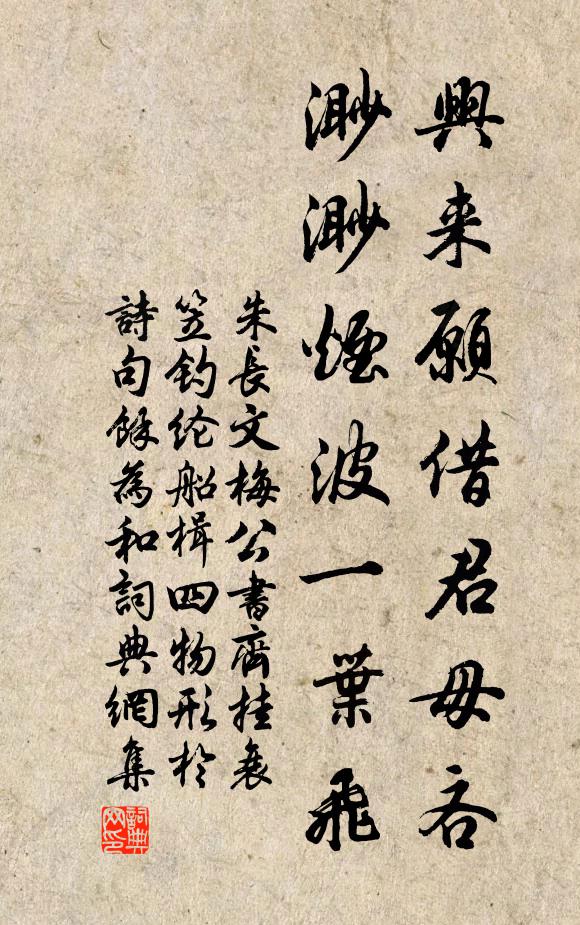 興来願借君毋吝
渺渺煙波一葉飛
朱長文梅公書齋挂蓑
笠钓纶船楫四物形於
詩句餘為和詞典網集
詞典網印